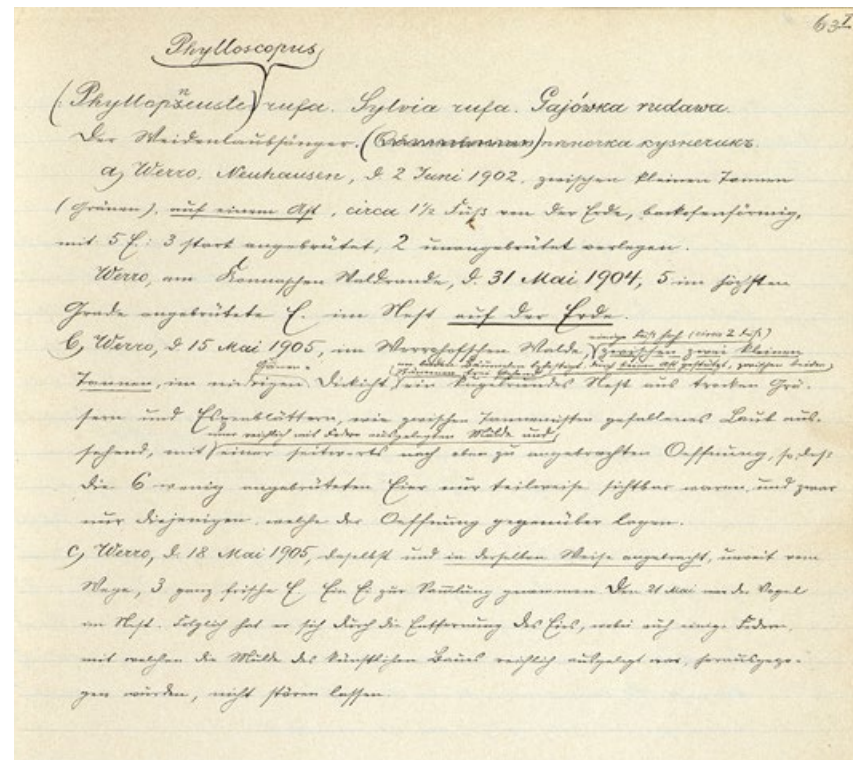 63⁷
Phylloscopus
(Phyllopneuste) rufa. Sylvia rufa. Gajówka rudawa.
Der Weidenlaubsänger. пѣночка кузнечикъ.
a) Werro. Neuhausen, d. 2 Juni 1902. zwischen kleinen Tannen
(Gränen), auf einem Ast, circa 1½ Fuß von der Erde, backofenförmig,
mit 5 E.: 3 stark angebrütet, 2 unangebrütet verlegen.
Werro, am Waldrande, d. 31 Mai 1904, 5 im höchsten
Grade angebrütete E. im Nest auf der Erde.
einige Fuß hoch (circa 2 Fuß)
b) Werro, d. 15 Mai 1905, im Werrohofschen Walde, zwischen zwei kleinen
an beiden Bäumchen befestigt, durch keinen Ast gestützt, zwischen beiden
Gränen- Stämmen frei
Tannen, im niedrigen Dickicht ein kugelrundes Nest aus trocken Grä-
sern und Espenblättern, wie zwischen Tannenästen gefallenes Laub aus-
einer reichlich mit Federn ausgelegten Mulde und
sehend, mit einer seitwerts nach oben zu angebrachten Oeffnung, so daß
die 6 wenig angebrüteten Eier nur teilweise sichtbar waren, und zwar
nur diejenigen, welche der Oeffnung gegenüber lagen.
c) Werro, d. 18 Mai 1905, daselbst und in derselben Weise angebracht, unweit vom
Wege, 3 ganz frische E. Ein Ei zur Sammlung genommen. Den 21 Mai war der Vogel
im Nest. Folglich hat er sich durch die Entfernung des Eies, wobei auch einige Federn,
mit welchen die Mulde des künstlichen Baues reichlich ausgelegt war, herausgezo-
gen wurden, nicht stören lassen.